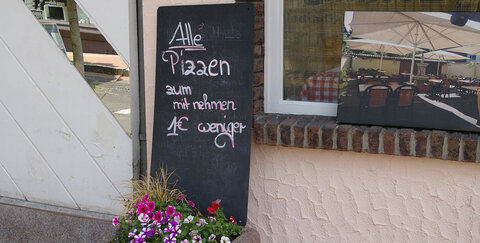 Alle
Pizzen
zum
mit nehmen
1€ weniger